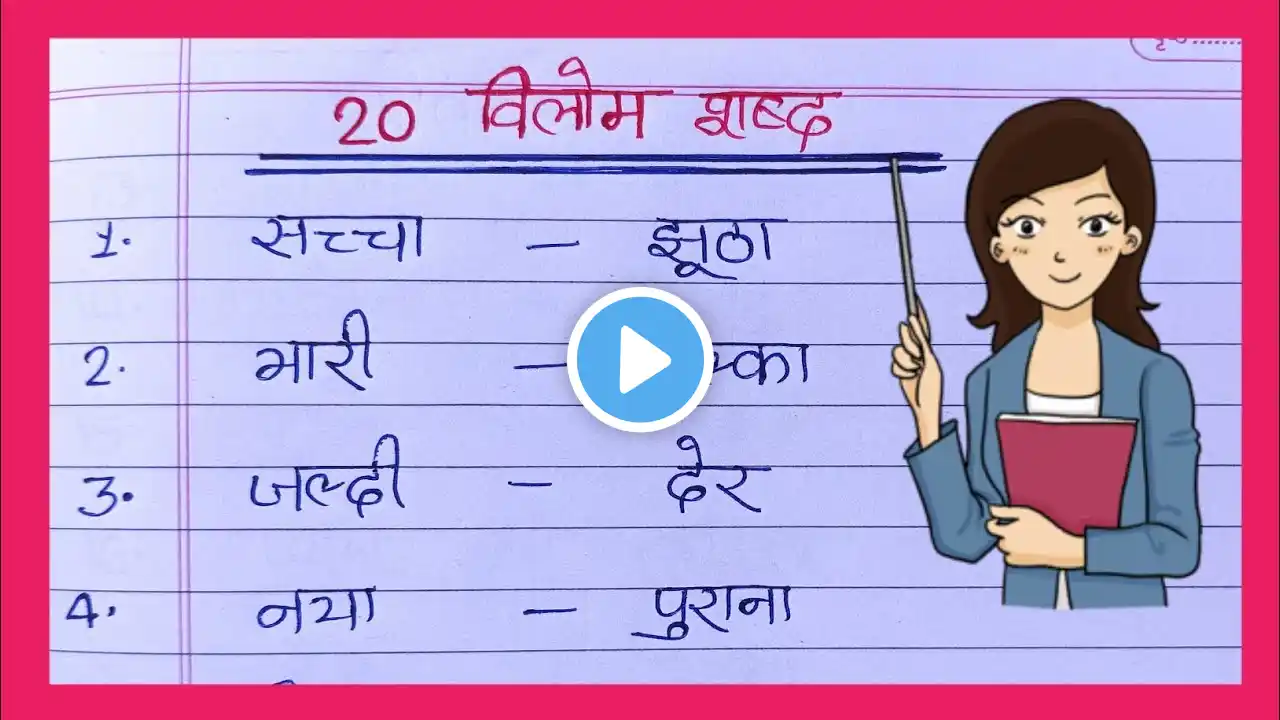 20 विलोम शब्द
1. सच्चा – झूठा
2. भारी –
3. जल्दी – देर
4. नया – पुराना